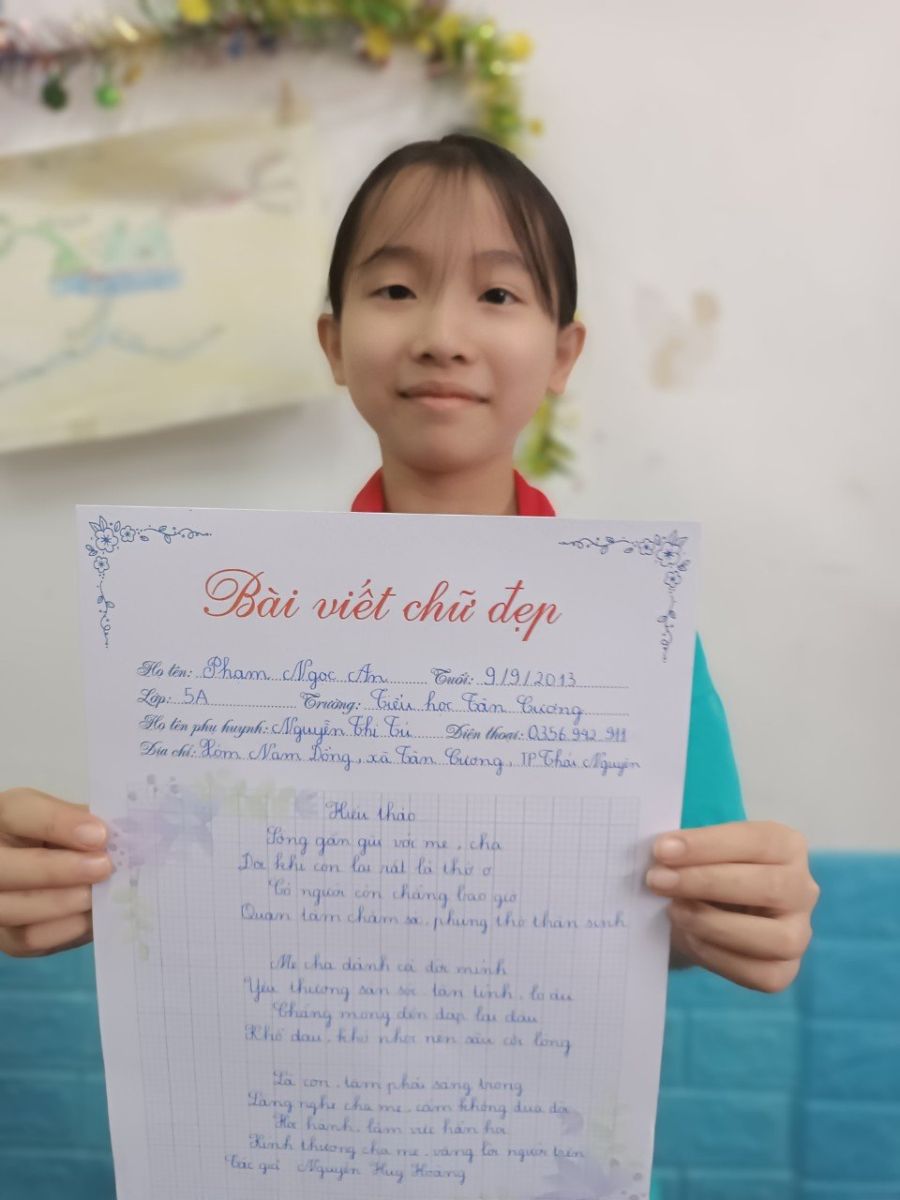 Bài viết chữ đẹp
Họ tên: Phạm Ngọc An Tuổi: 9/9/2013
Lớp: 5A Trường: Tiểu học Tân Cương
Họ tên phụ huynh: Nguyễn Thị Tú Điện thoại: 0356.942.911
Địa chỉ: Xóm Nam Đồng, xã Tân Cương, TP Thái Nguyên
Hiếu thảo
Sống gần gũi với mẹ, cha
Đôi khi con lại rất là thờ ơ
Có người còn chẳng bao giờ
Quan tâm chăm sóc, phụng thờ thân sinh
Mẹ cha dành cả đời mình
Yêu thương săn sóc, tận tình, lo âu
Chẳng mong đền đáp lại đâu
Khổ đau, khó nhọc nén sâu cõi lòng
Là con, tâm phải sáng trong
Lắng nghe cha mẹ, cấm không đua đòi
Học hành, làm việc hẳn hoi
Kính thương cha mẹ, vâng lời người trên
Tác giả Nguyễn Huy Hoàng